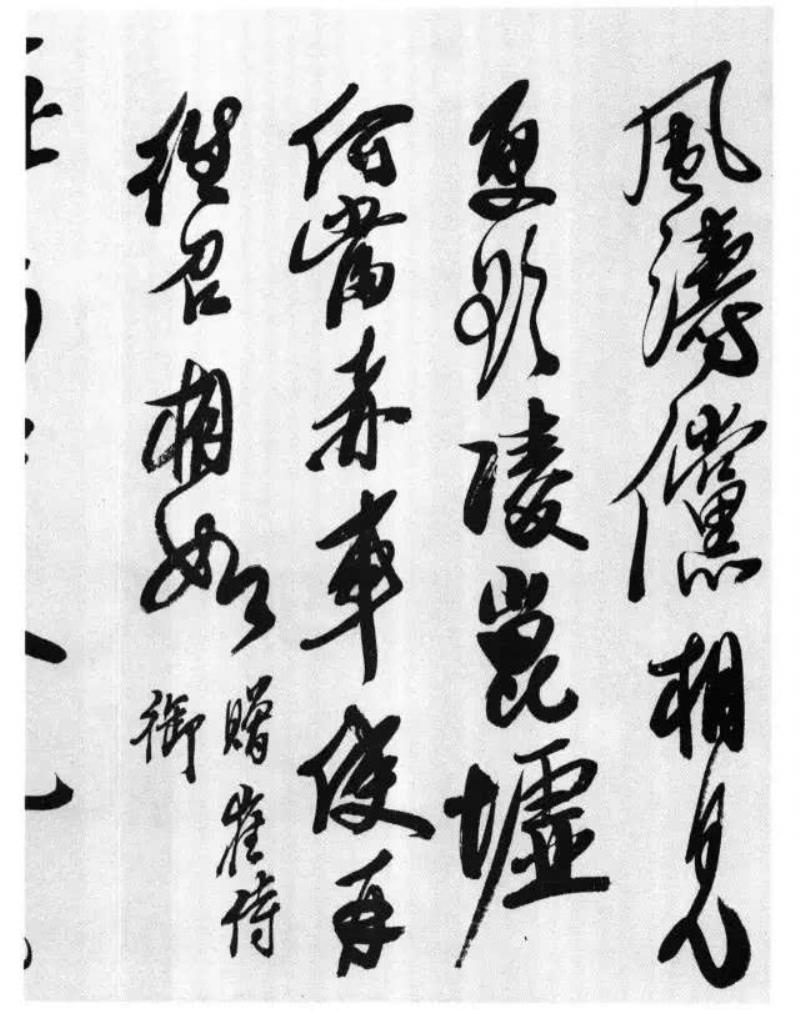 風濤儻相見
更欲陵崑墟
何當赤車使再
往召相如
贈崔侍
御